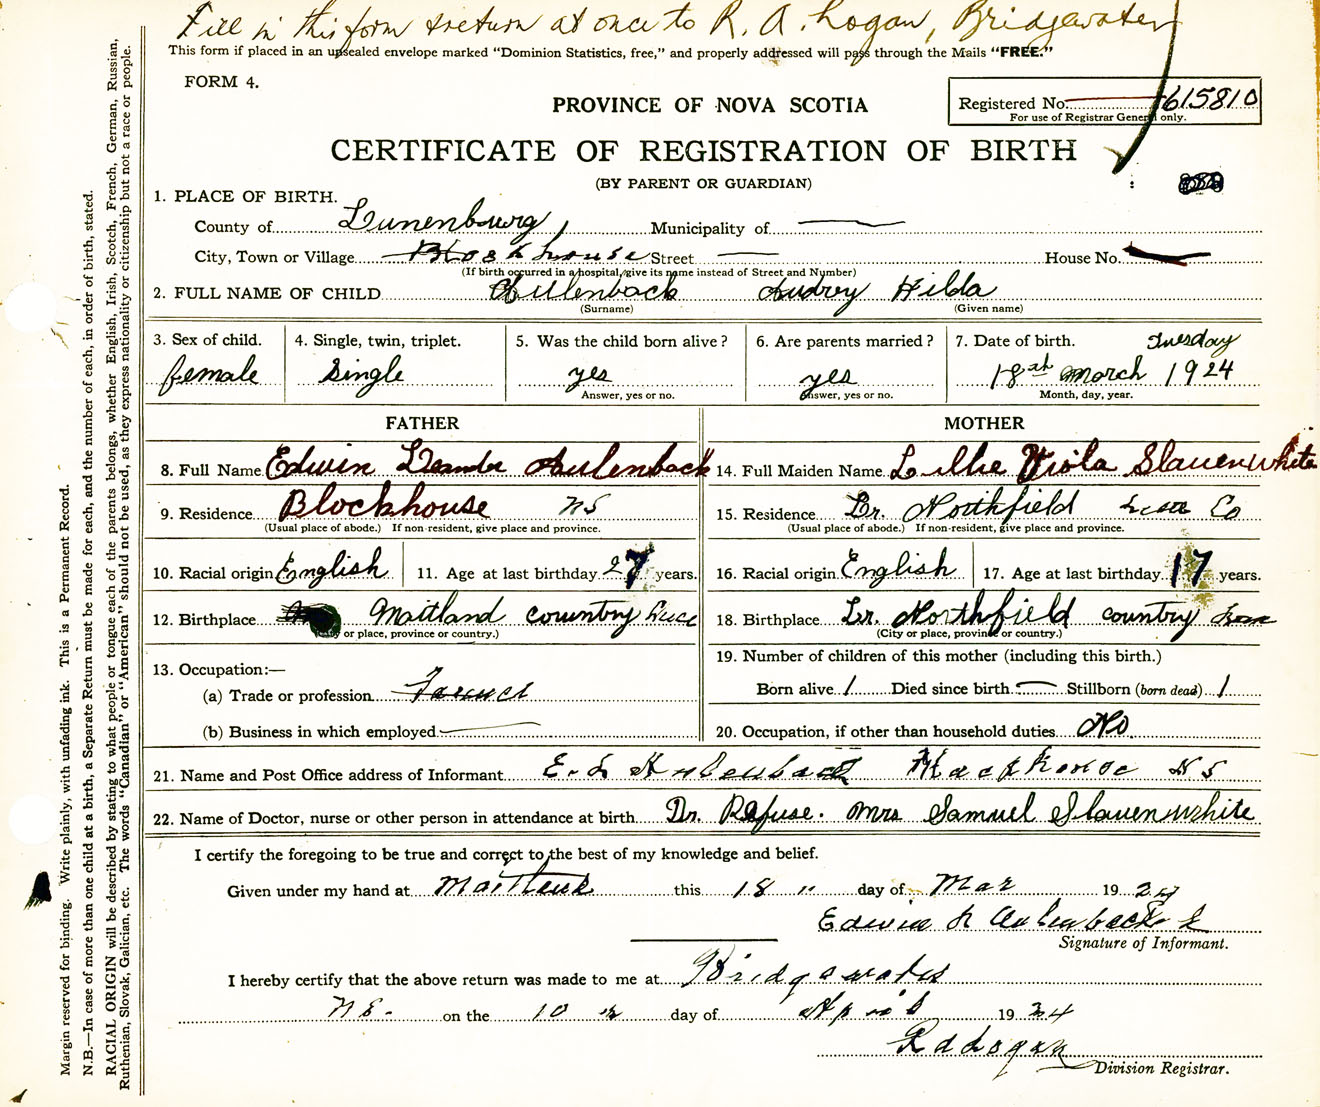 Fill in this form & return at once to R. A. Logan, Bridgewater
This form if placed in an unsealed envelope marked "Dominion Statistics, free," and properly addressed will pass through the Mails "FREE."
FORM 4.
PROVINCE OF NOVA SCOTIA
Registered No. 615810
For use of Registrar General only.
CERTIFICATE OF REGISTRATION OF BIRTH
(BY PARENT OR GUARDIAN)
1. PLACE OF BIRTH.
County of Lunenburg Municipality of
City, Town or Village Blockhouse Street House No.
(If birth occurred in a hospital, give its name instead of Street and Number)
2. FULL NAME OF CHILD Aulenback Audrey Hilda
(Surname) (Given name)
3. Sex of child. 4. Single, twin, triplet. 5. Was the child born alive? 6. Are parents married? 7. Date of birth. Tuesday
female Single yes yes 18th March 1924
Answer, yes or no. Answer, yes or no. Month, day, year.
FATHER MOTHER
8. Full Name Edwin Leander Aulenback 14. Full Maiden Name Lillie Viola Slauenwhite
9. Residence Blockhouse NS 15. Residence Lr. Northfield Co
(Usual place of abode.) If non-resident, give place and province. (Usual place of abode.) If non-resident, give place and province.
10. Racial origin English 11. Age at last birthday 27 years. 16. Racial origin English 17. Age at last birthday 17 years.
12. Birthplace Maitland country 18. Birthplace Lr. Northfield country
(City or place, province or country.) (City or place, province or country.)
13. Occupation:— 19. Number of children of this mother (including this birth.)
(a) Trade or profession Farmer Born alive 1 Died since birth — Stillborn (born dead) 1
(b) Business in which employed 20. Occupation, if other than household duties No
21. Name and Post Office address of Informant E. L Aulenback Blockhouse N S
22. Name of Doctor, nurse or other person in attendance at birth Dr. Rafuse. Mrs Samuel Slauenwhite
I certify the foregoing to be true and correct to the best of my knowledge and belief.
Given under my hand at Maitland this 18 " day of Mar 1924
Edwin L Aulenback
Signature of Informant.
I hereby certify that the above return was made to me at Bridgewater
N S. on the 10 day of April 1924
R A Logan
Division Registrar.
Margin reserved for binding. Write plainly, with unfading ink. This is a Permanent Record.
N.B.—In case of more than one child at a birth, a Separate Return must be made for each, and the number of each, in order of birth, stated.
RACIAL ORIGIN will be described by stating to what people or tongue each of the parents belongs, whether English, Irish, Scotch, French, German, Russian,
Ruthenian, Slovak, Galician, etc. The words "Canadian" or "American" should not be used, as they express nationality or citizenship but not a race or people.